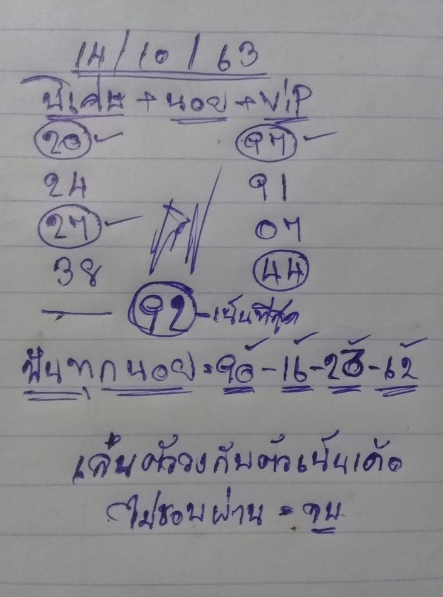 14/10/63
พิเศษ + นอย + VIP
20 97
24 91
27 07
38 44
92 - เน้นที่สุด
ฟันทุกนอย = 90 - 16 - 28 - 62
เล่นตัววงกับตัวเน้นเด้อ
ไม่ชอบผ่าน = จบ